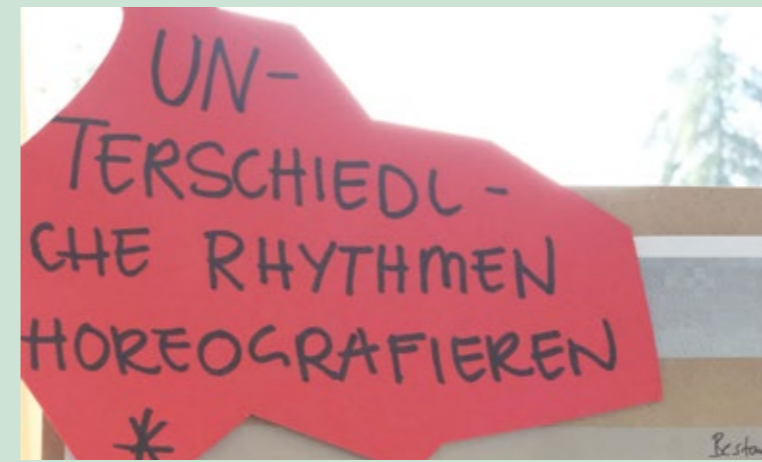 UN-
TERSCHIEDL-
CHE RHYTHMEN
HOREOGRAFIEREN
*